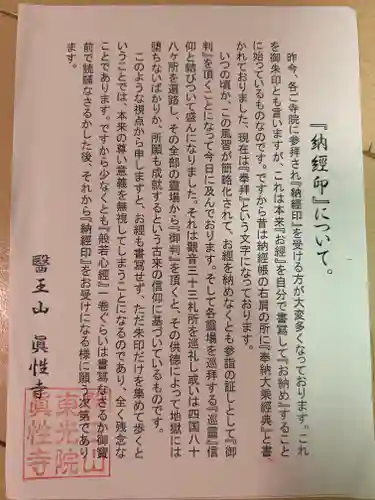 『納經印』について。
昨今、各ご寺院に参拝され『納經印』を受ける方が大変多くなっております。これ
を御朱印とも言いますが、これは本来『お經』を自分で書寫して『お納め』すること
に始っているものなのです。ですから昔は納經帳の右肩の所に『奉納大乗經典』と書
かれておりました。現在は『奉拝』という文字になっております。
いつの頃か、この風習が簡略化されて、お經を納めなくとも参詣の証しとして『御
判』を頂くことになって今日に及んでおります。そして各靈場を巡拝する『巡靈』信
仰と結びついて盛んになりました。それは觀音三十三札所を巡礼し或いは四国八十
八ヶ所を遍路し、その全部の靈場から『御判』を頂くと、その供徳によって地獄には
堕ちないばかりか、所願も成就するという古来の信仰に基づいているものです。
このような視点から申しますと、お經も書寫せず、ただ朱印だけを集めて歩くと
いうことでは、本来の尊い意義を無視してしまうことになるのであり、全く残念な
ことであります。ですから少なくとも『般若心經』一巻ぐらいは書寫なさるか御寶
前で読誦なさるかした後、それから『納經印』をお受けになる様に願う次第であり
ます。
醫王山 眞性寺
東光院
眞性寺